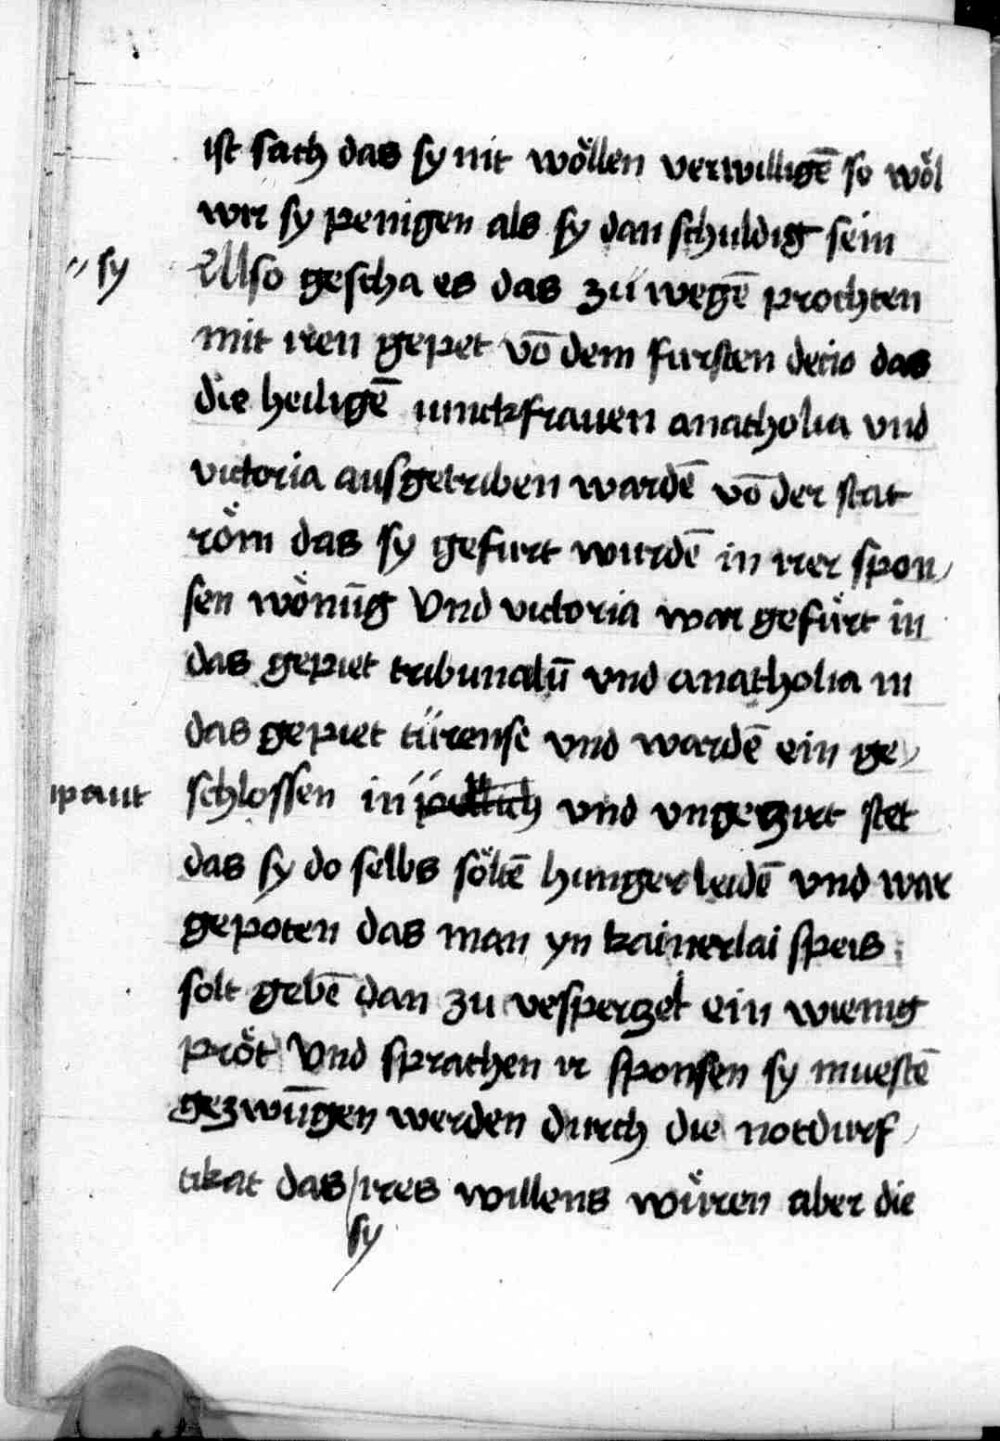 ist sach das sy nit wöllen verwilligē so wöl
wir sy penigen als sy dan schuldig sein
〃 sy Also gescha es das zü wegē prochten
mit iren gepet vō dem fürsten decio das
die heiligē iunckfrauen anatholia vnd
victoria ausgetriben wardē vō der stat
röm das sy gefurt wurdē in irer spon
sen wönūg Vnd victoria war gefürt in
das gepiet tribunalū vnd anatholia in
das gepiet türense vnd wardē ein ge
schlossen in vnd vngezirt stet
das sy do selbs söltē hunger leidē vnd war
gepoten das man yn kainerlai speis
solt gebē dan zu vesperzet ein wienig
pröt Vnd sprachen ir sponsen sy muestē
gezwūngen werden durch die notdurf
tikat das ires willens würen aber die
sy